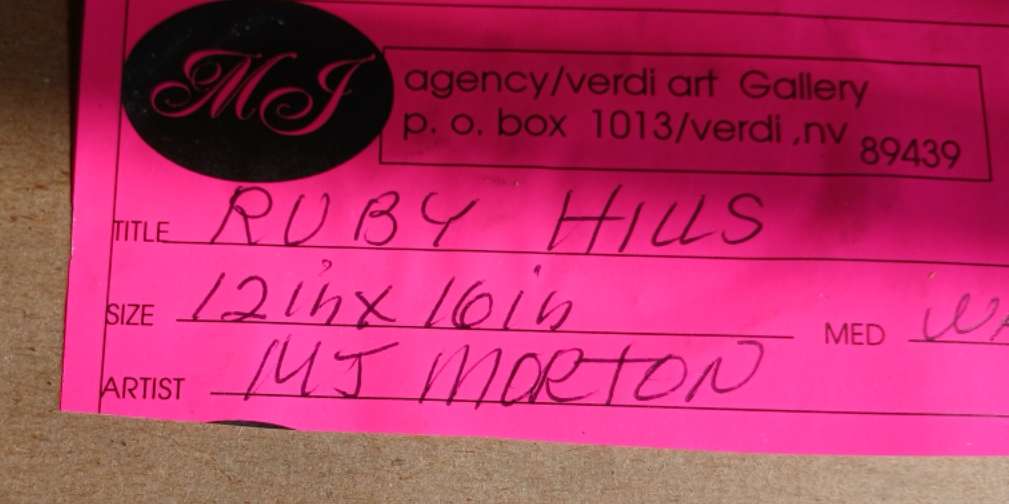 MJ
agency/verdi art Gallery
p. o. box 1013/verdi ,nv 89439
TITLE RUBY HILLS
SIZE 12in x 16in MED
ARTIST MJ MORTON